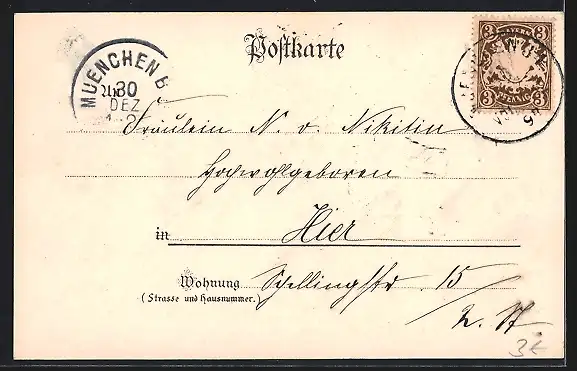 Postkarte
BAYERN
3 3
3 PFENNIG 3
MUENCHEN B
30
DEZ
Fräulein N. v. Nikitin
Hochwohlgeboren
in Hier
Wohnung Schellingstr. 15
(Strasse und Hausnummer.)
2. St.
3€